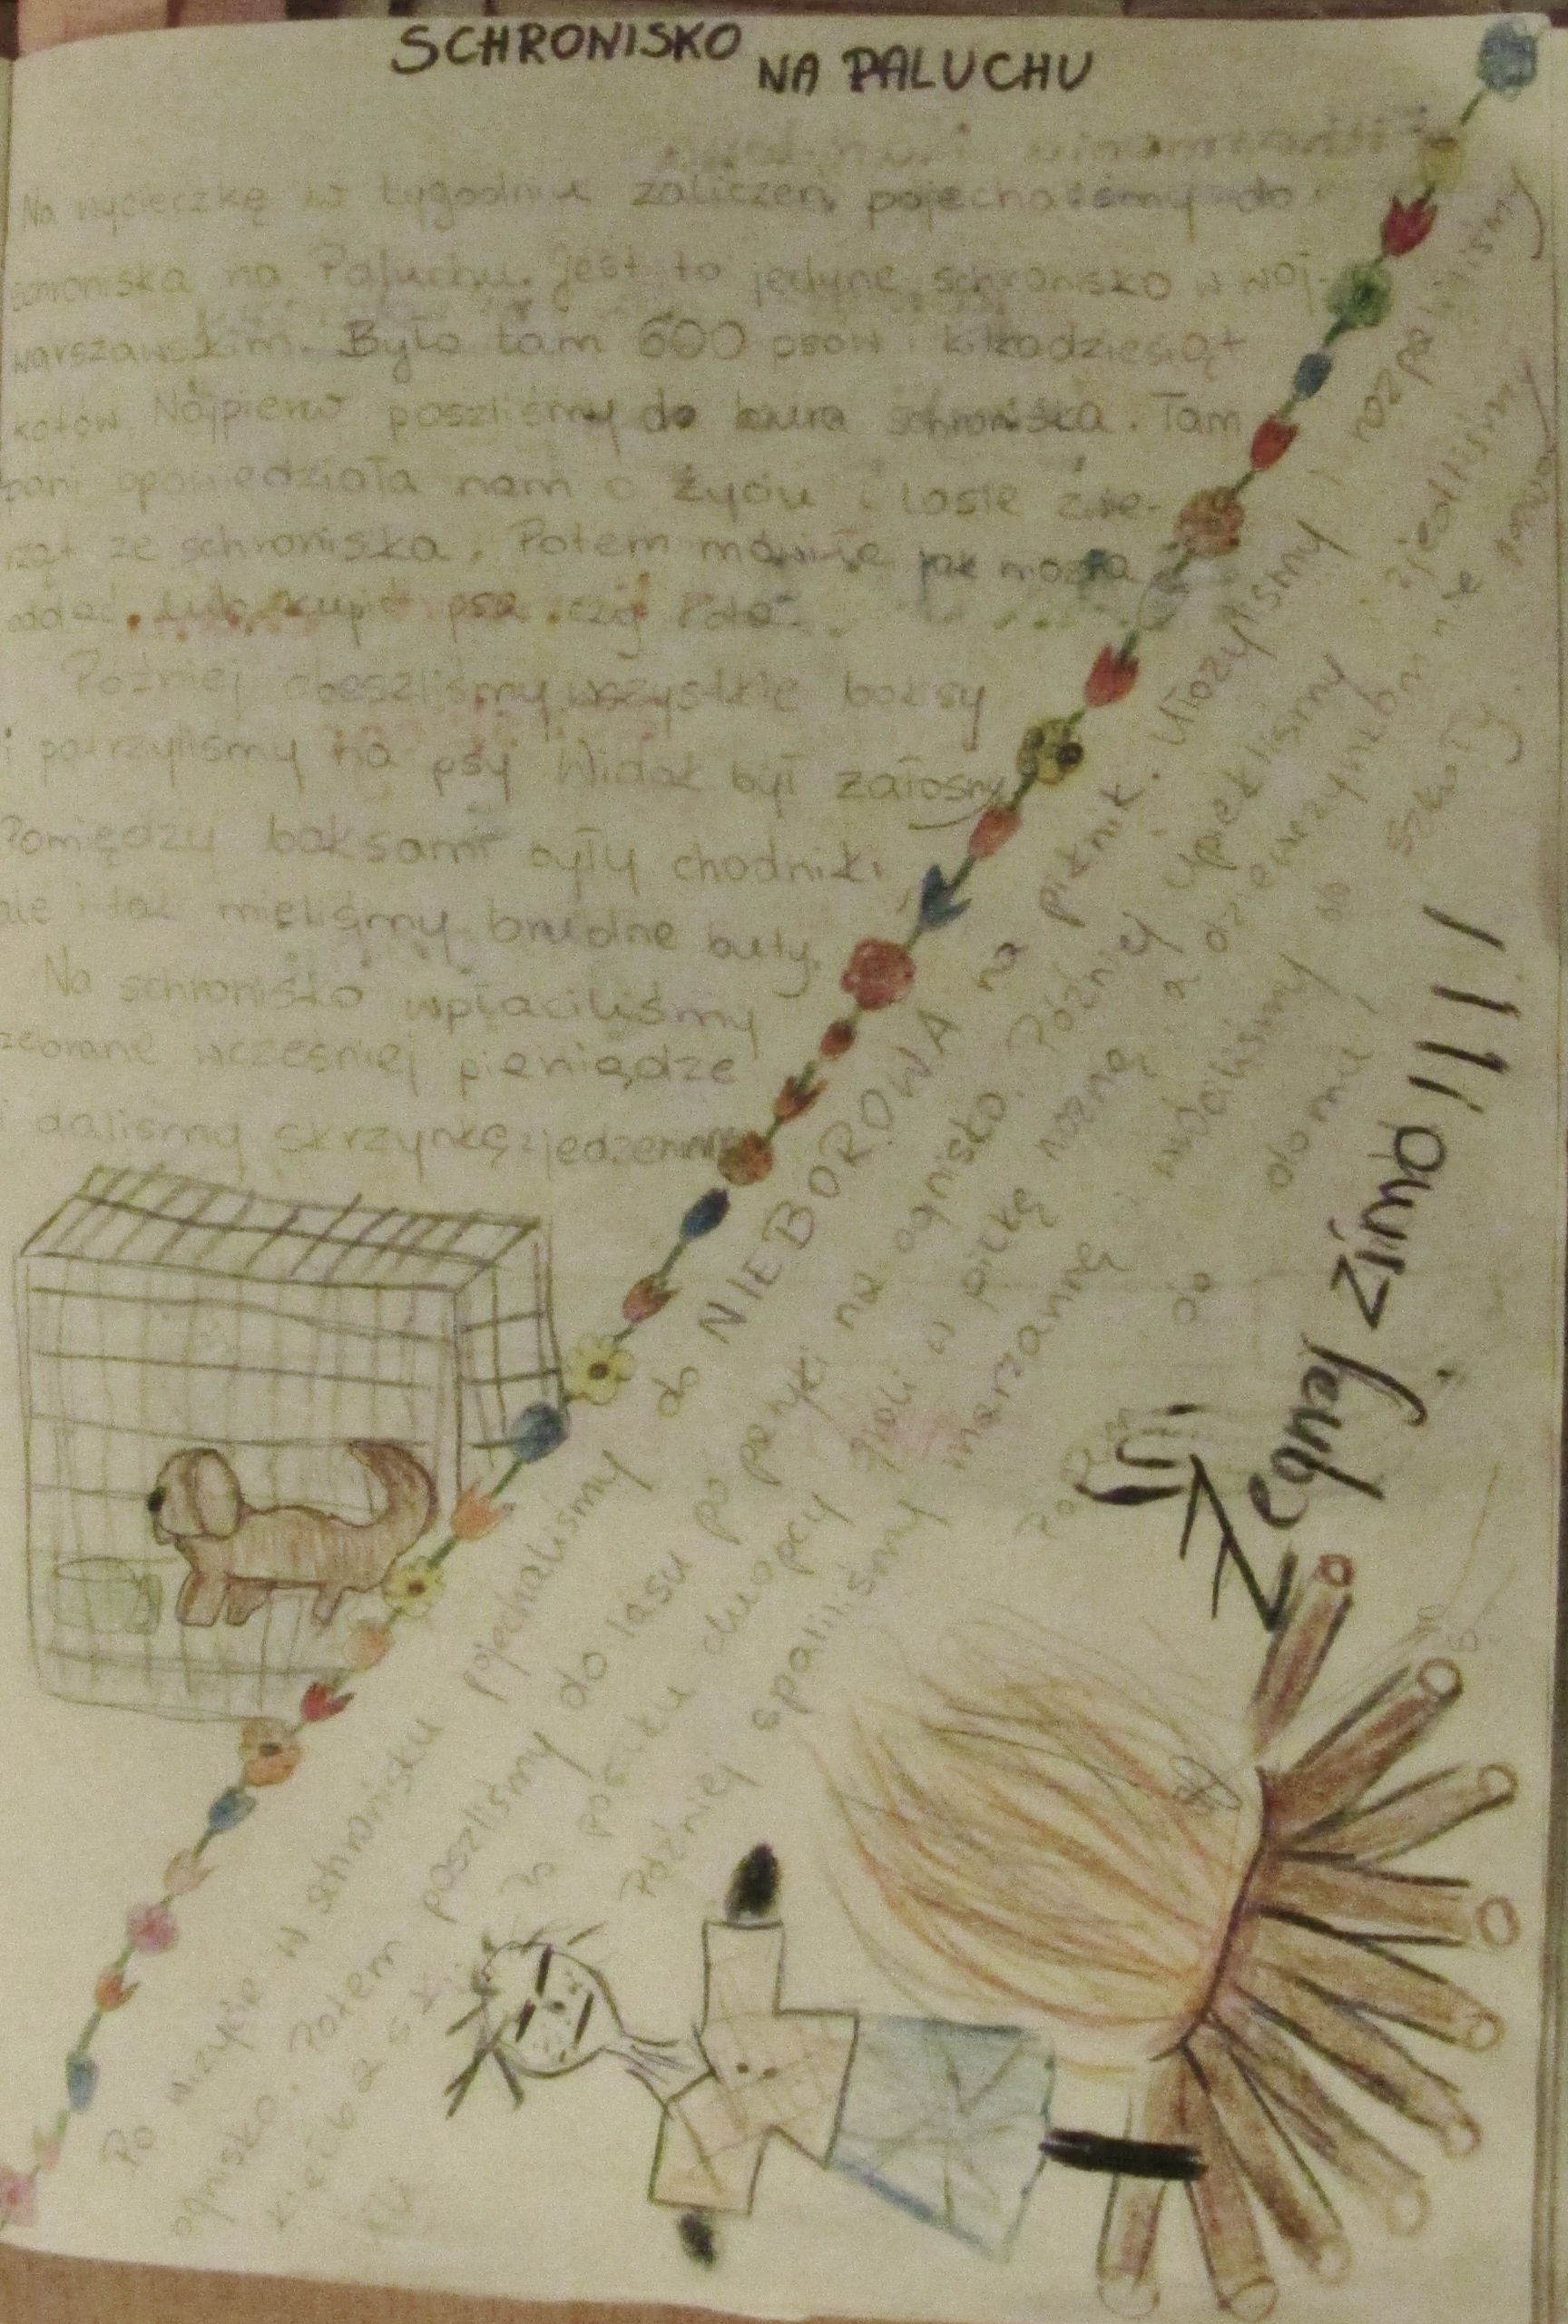 SCHRONISKO
NA PALUCHU
Na wycieczkę w tygodniu zaliczeń pojechaliśmy do
schroniska na Paluchu. Jest to jedyne schronisko w woj.
warszawskim. Było tam 600 psów i kilkadziesiąt
kotów. Najpierw poszliśmy do biura schroniska. Tam
pani opowiedziała nam o życiu i losie zwie-
rząt ze schroniska. Potem mówiła jak można
oddać lub kupić psa czy kota.
Później obeszliśmy wszystkie boksy
i patrzyliśmy na psy. Widok był żałosny
Pomiędzy boksami były chodniki,
ale i tak mieliśmy brudne buty.
Na schronisko wpłaciliśmy
zebrane wcześniej pieniądze
i daliśmy skrzynkę z jedzeniem
Po wizycie w schronisku pojechaliśmy do NIEBOROWA na piknik. Ułożyliśmy i rozpaliliśmy
ognisko. Potem poszliśmy do lasu po patyki na ognisko. Później upiekliśmy i zjedliśmy
kiełbaski. Po posiłku chłopcy grali w piłkę nożną, a dziewczynkom nie
Później spaliliśmy marzannę i wróciliśmy do szkoły.
Potem do domu
Żegnaj zimo!!!!